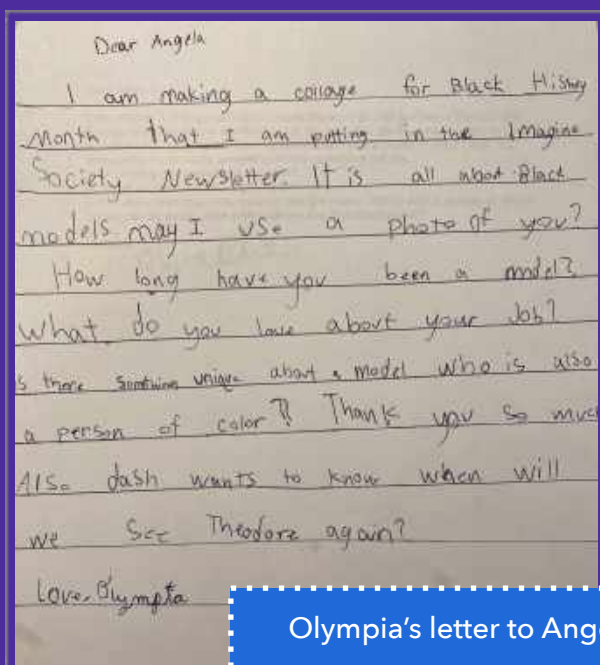 Dear Angela
I am making a collage for Black History
Month that I am putting in the Imagine
Society Newsletter. It is all about Black
models may I use a photo of you?
How long have you been a model?
What do you love about your Job?
s there something unique about a model who is also
a person of color? Thank you so much
Also dash wants to know when will
we see Theodore again?
Love, Olympia
Olympia's letter to Ang